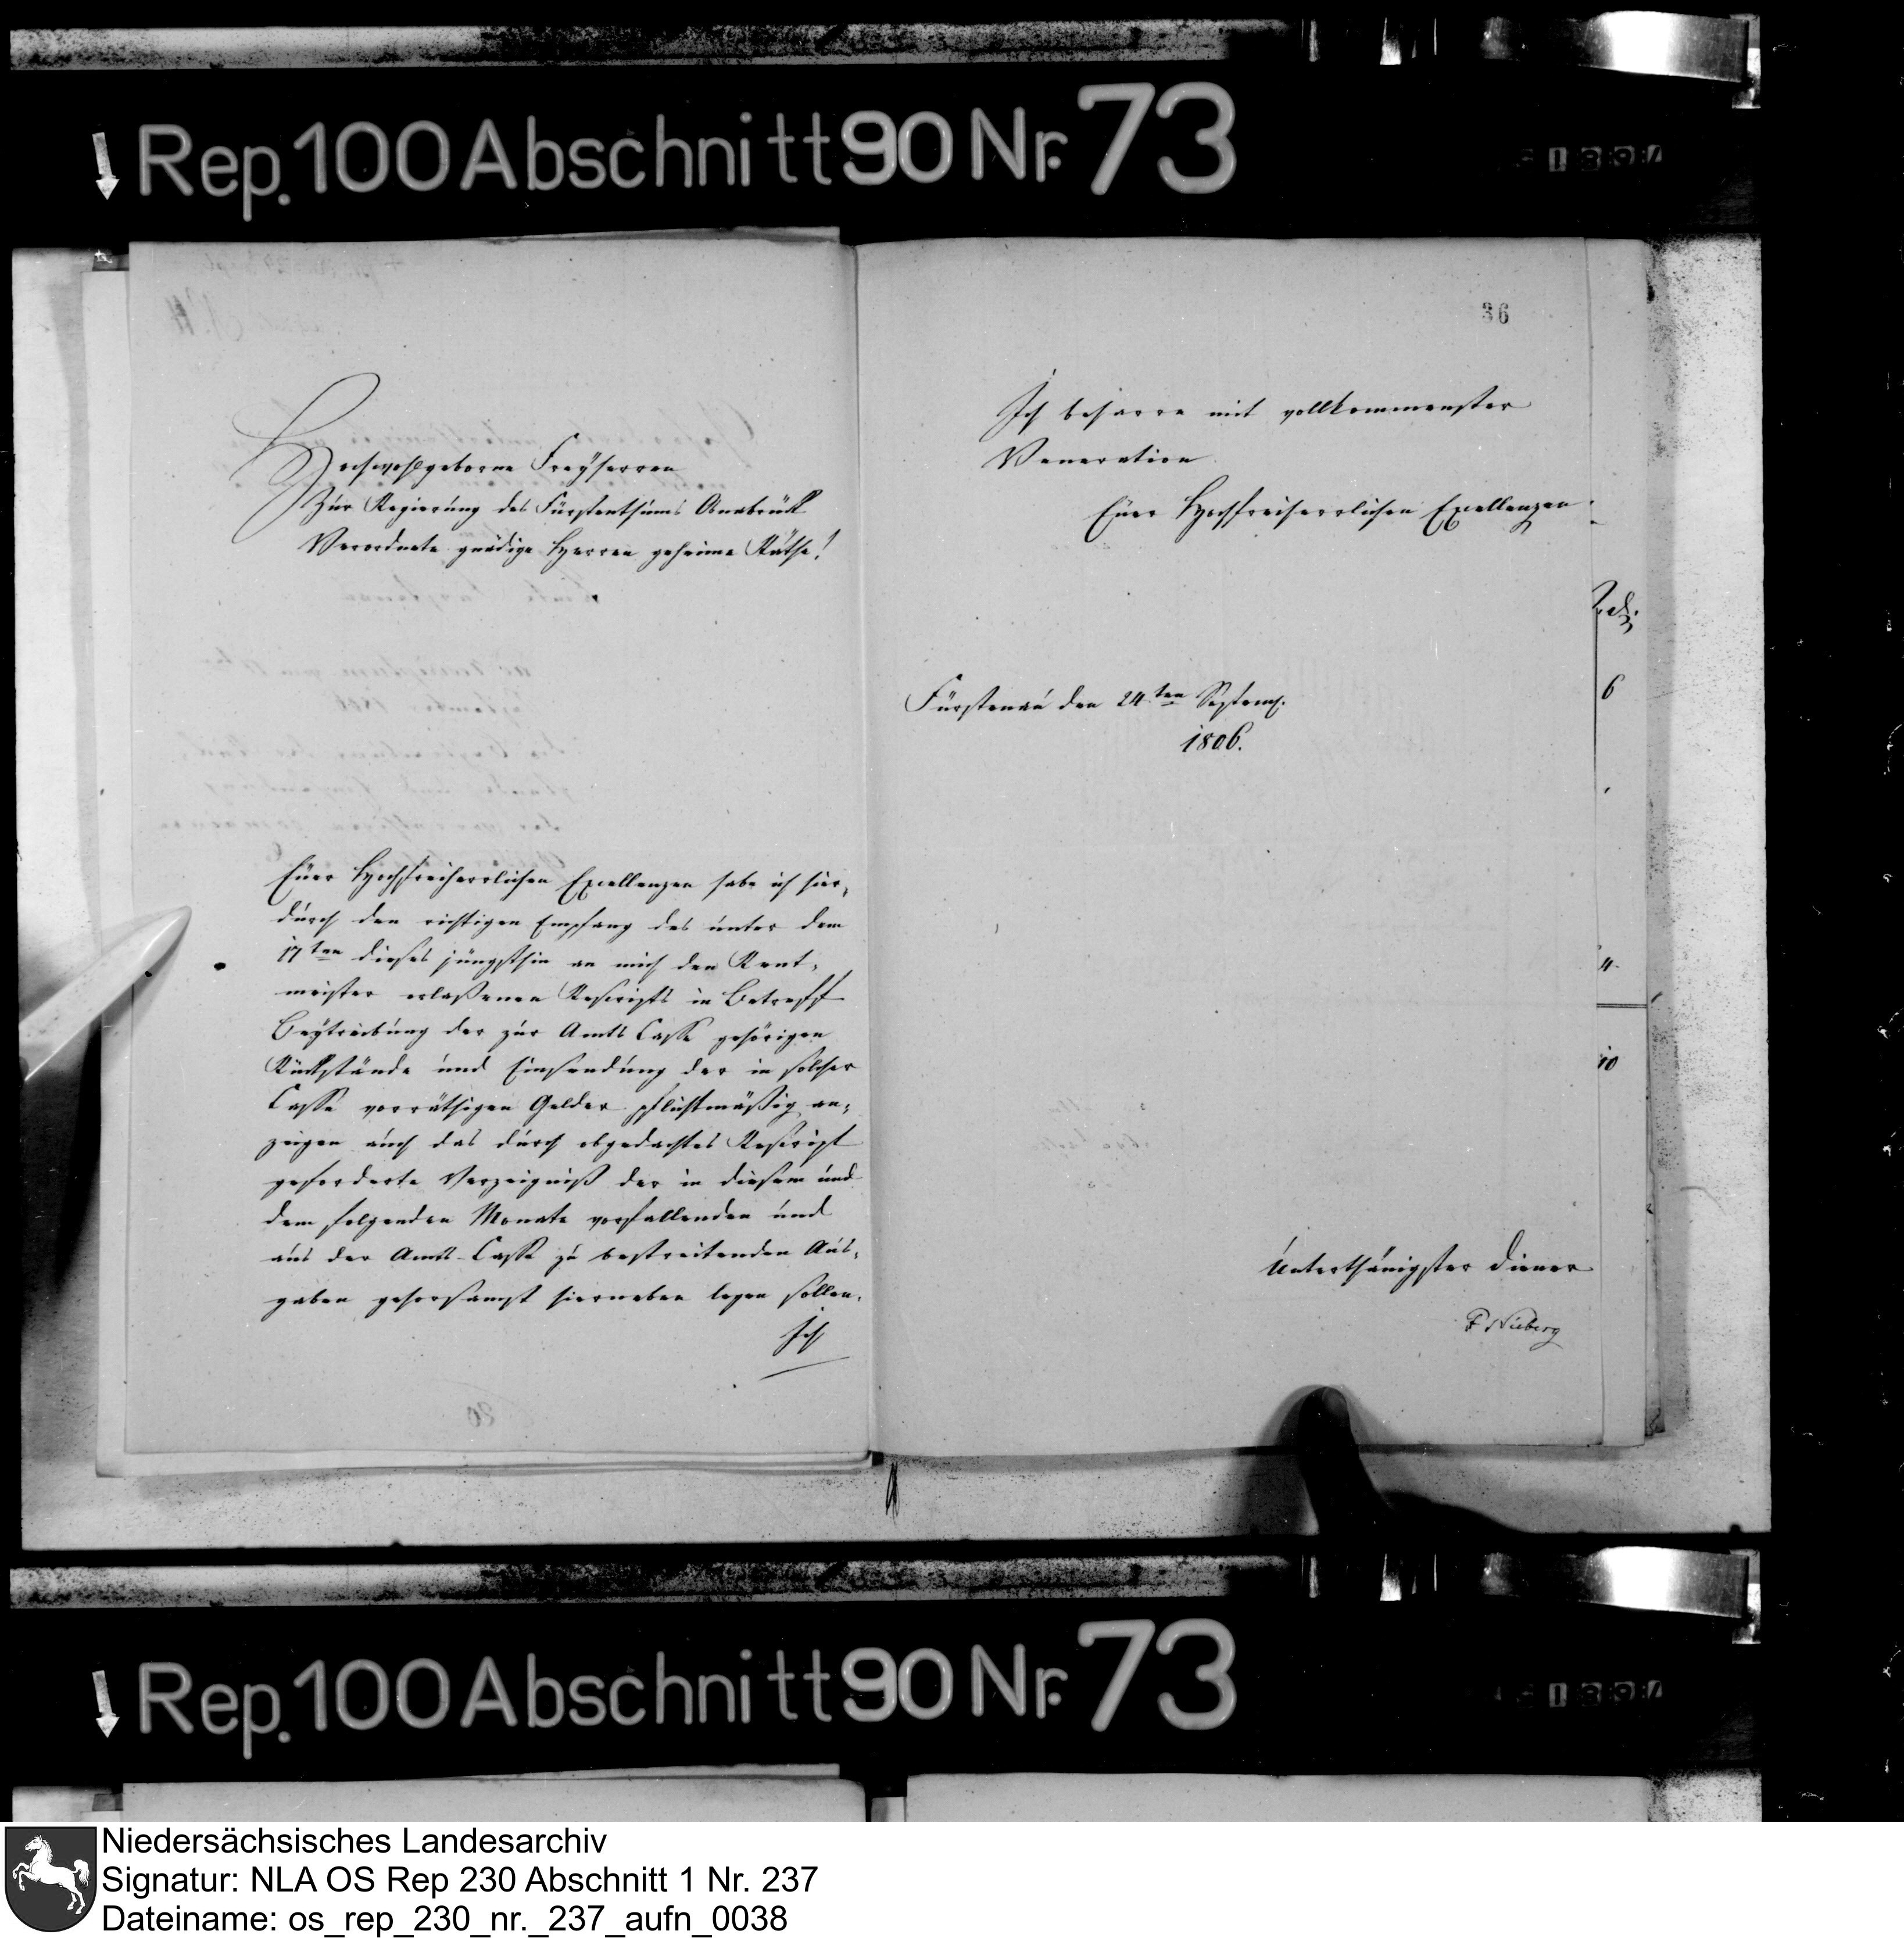 Rep. 100 Abschnitt 90 Nr. 73
Hochwohlgeborne Freyherren
Zur Regierung des Fürstenthums Osnabrück
Verordnete gnädige Herren geheime Räthe!
Euer Hochfreiherrlichen Excellenzen habe ich hier,
durch den richtigen Empfang des unter dem
17ten dieses jüngsthin an mich den Rent,
meister erlaßenen Rescripts in Betreff
Beytreibung der zur Amts Casse gehörigen
Rückstände und Einsendung der in solcher
Casse vorräthigen Gelder pflichtmäßig an,
zeigen auch das durch obgedachtes Rescript
geforderte Verzeigniß der in diesem und
dem folgenden Monate vorfallenden und
aus der Amts-Casse zu bestreitenden Aus,
gaben gehorsamst hierneben legen sollen.
Ich
36
Ich beharre mit vollkommenster
Veneration
Euer Hochfreiherrlichen Excellenzen
Fürstenau den 24ten Septemb.
1806.
Unterthänigster Diener
F Nieberg
6
4
10
Rep. 100 Abschnitt 90 Nr. 73
Niedersächsisches Landesarchiv
Signatur: NLA OS Rep 230 Abschnitt 1 Nr. 237
Dateiname: os_rep_230_nr._237_aufn_0038